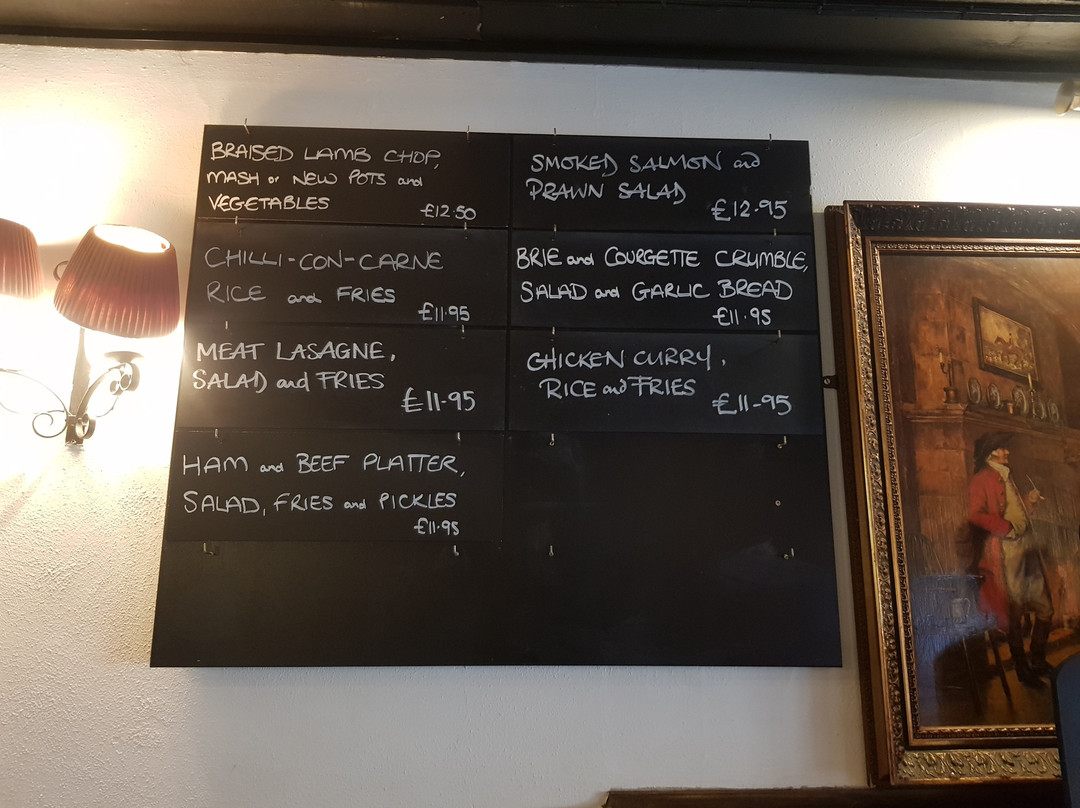 BRAISED LAMB CHOP,
MASH or NEW POTS and
VEGETABLES
£12.50
CHILLI-CON-CARNE
RICE and FRIES
£11.95
MEAT LASAGNE,
SALAD and FRIES
£11.95
HAM and BEEF PLATTER,
SALAD, FRIES and PICKLES
£11.95
SMOKED SALMON and
PRAWN SALAD
£12.95
BRIE and COURGETTE CRUMBLE,
SALAD and GARLIC BREAD
£11.95
CHICKEN CURRY,
RICE and FRIES
£11-95